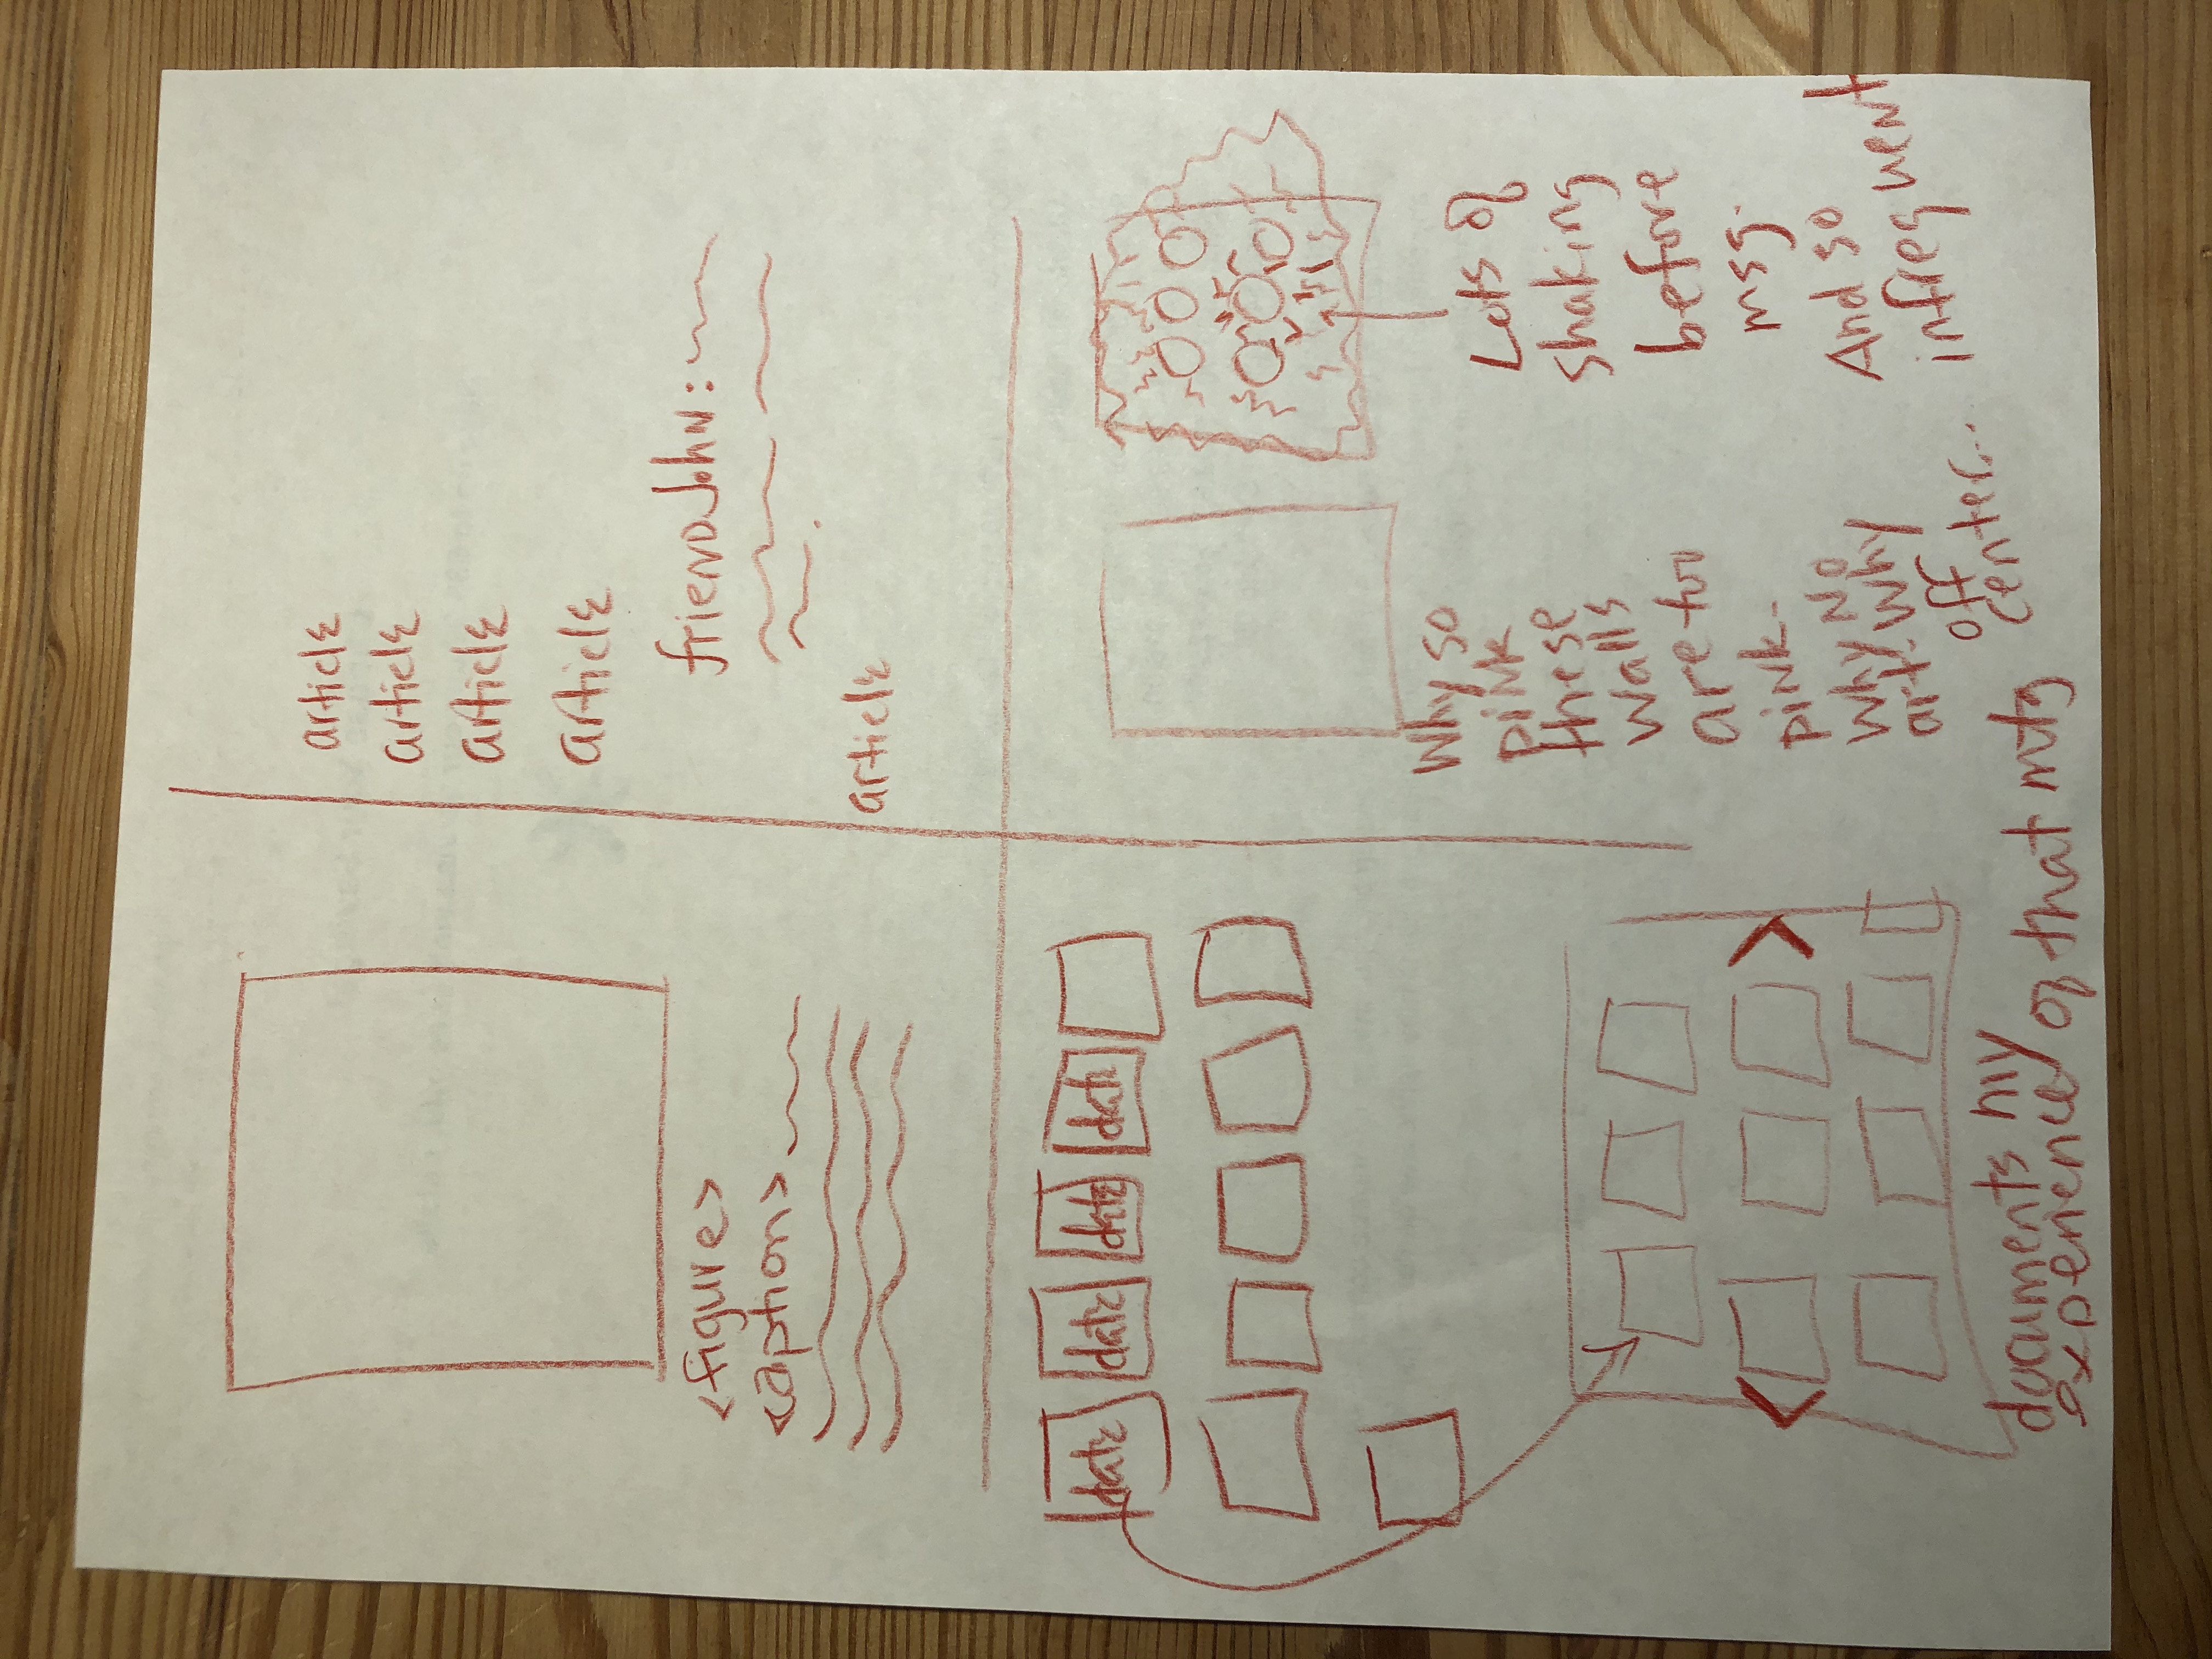 <figure>
<caption>
article
article
article
article
friend John:
article
date date date date
< >
documents my
experience of that mtg
Why so
pink
these
walls
are too
pink.
Why No
art. Why
off
center...
Lots of
shaking
before
msg.
And so
infrequent